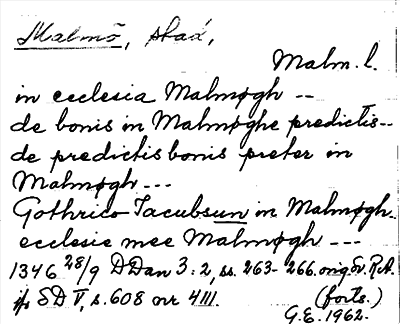 Malmö, stad,
Malm. l.
in ecclesia Malmøgh --
de bonis in Malmøghe predictis--
de predictis bonis preter in
Malmøgh ---
Gothrico Iacubsun in Malmøgh.
ecclesie mee Malmøgh ---
1346 28/9 DDan 3:2, ss. 263-266. orig Sv. R.A.
jfr SD V, s. 608 nr 4111. (forts.)
G.E. 1962.